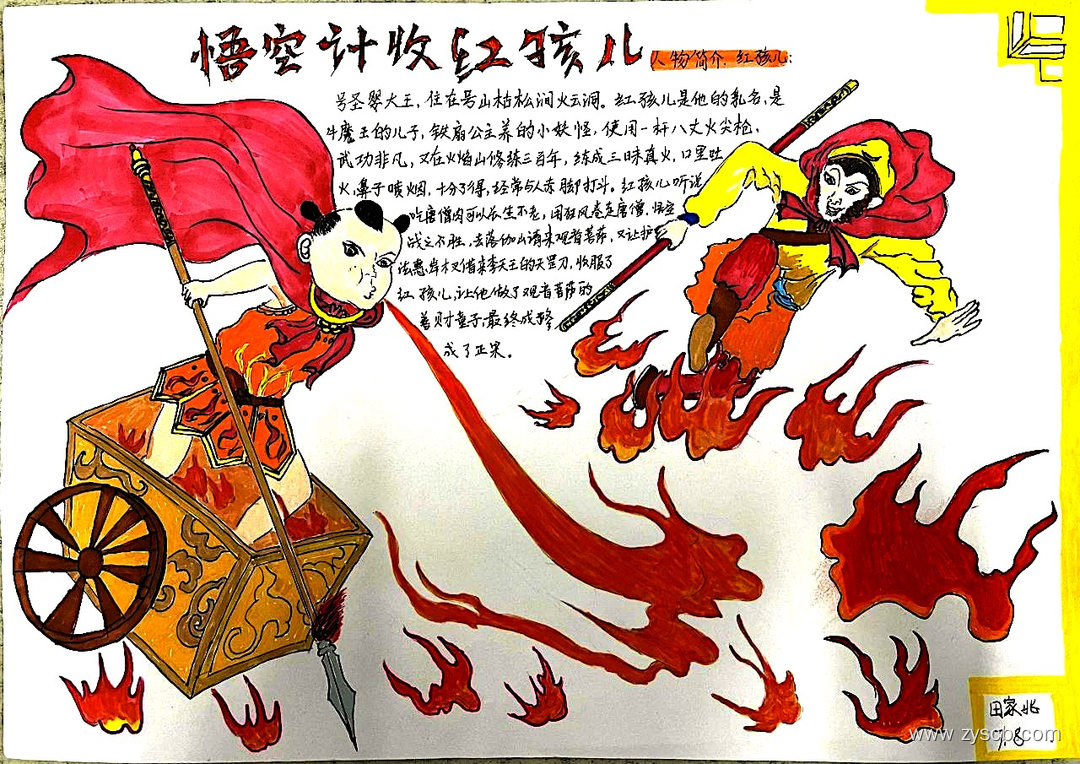 悟空计收红孩儿
人物简介:红孩儿:
号圣婴大王,住在号山枯松涧火云洞。红孩儿是他的乳名,是
牛魔王的儿子,铁扇公主养的小妖怪,使用一杆八丈火尖枪,
武功非凡,又在火焰山修练三百年,练成三昧真火,口里吐
火,鼻子喷烟,十分了得,经常与人赤脚打斗。红孩儿听说
吃唐僧肉可以长生不老,用狂风卷走唐僧,悟空
战之不胜,去落伽山请来观音菩萨,又让护
法惠岸木叉借来李天王的天罡刀,收服了
红孩儿,让他做了观音菩萨的
善财童子,最终成修
成了正果。
田家兆
7.8
www.zyscp.com